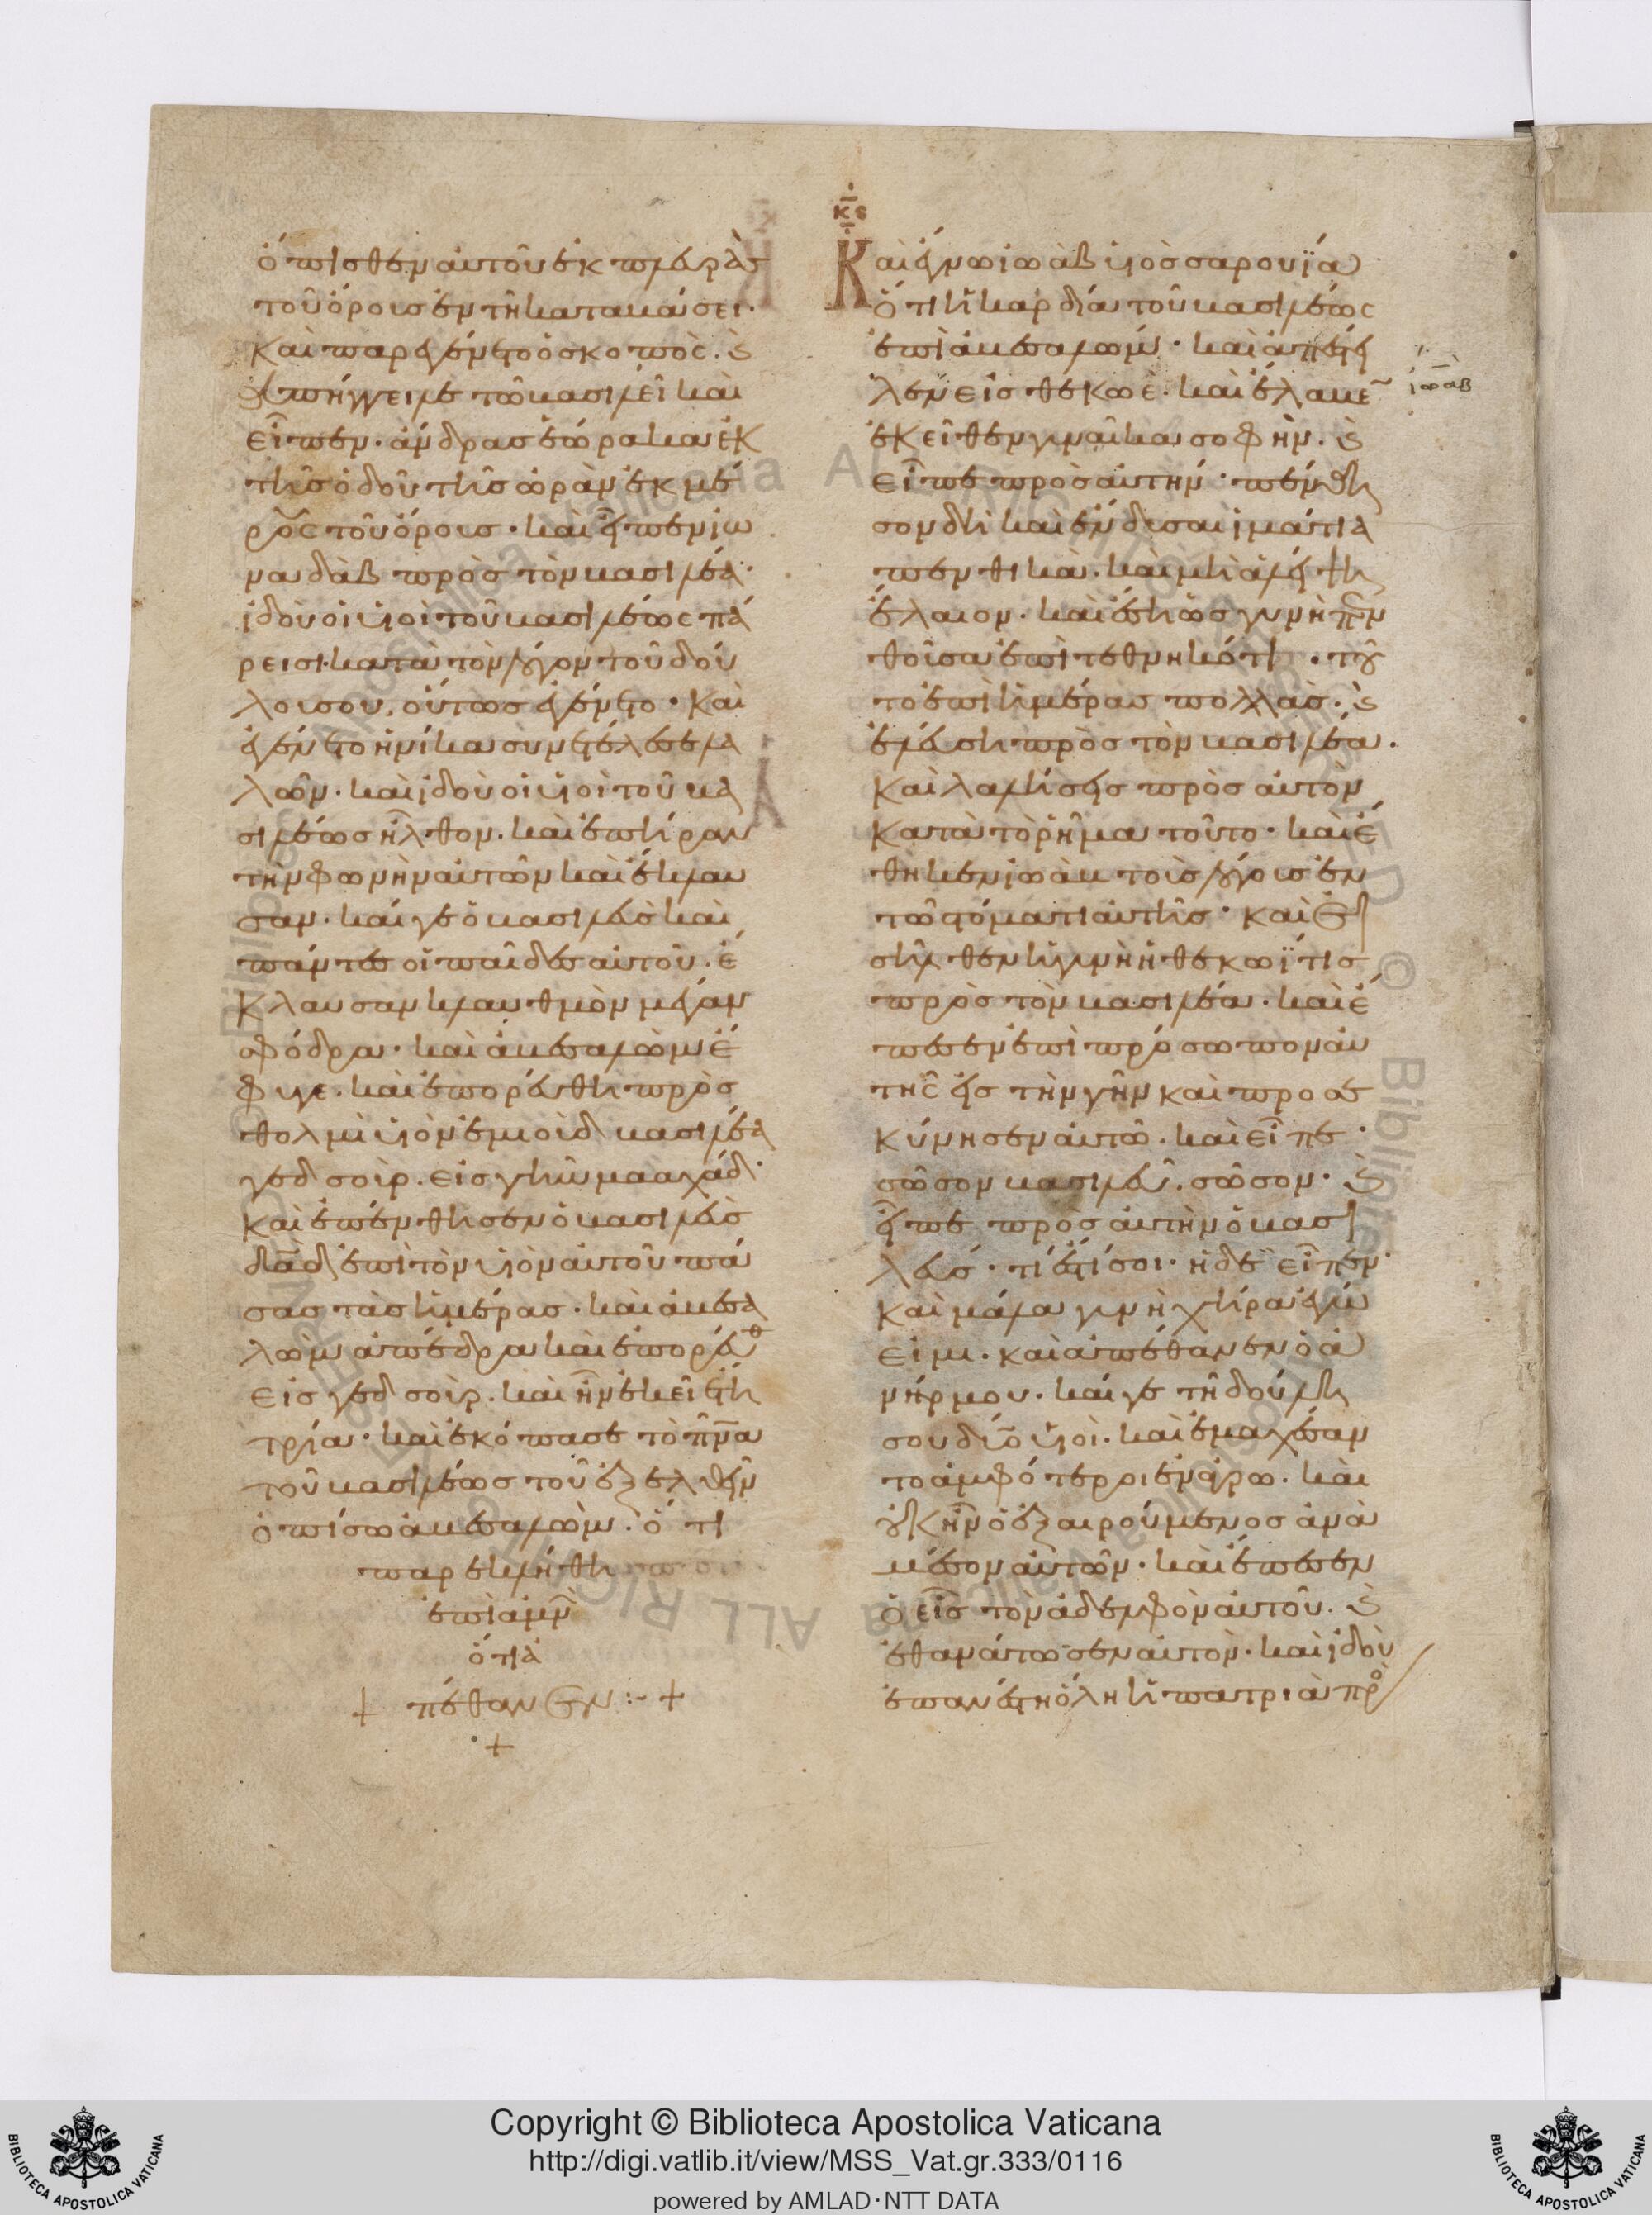 ὄπισθεν αὐτοῦ ἐκ πλευρᾶς
τοῦ ὄρους ἐν τῆ καταβάσει·
καὶ παρεγένετο ὁ σκοπὸς. καὶ
ἀπήγγειλε τῶ βασιλεῖ καὶ
εἶπεν· ἄνδρας ἑώρακα ἐκ
τῆς ὁδοῦ τῆς ὠρὰν ἐκ μέ
ρους τοῦ ὄρους· καὶ εἶπεν ἰω
ναδὰβ πρὸς τὸν βασιλέα·
ἰδοὺ οἱ υἱοὶ τοῦ βασιλέως πά
ρεισι· κατὰ τὸν λόγον τοῦ δού
λου σου, οὕτως ἐγένετο· καὶ
ἐγένετο ἡνίκα συνετέλεσε λα
λῶν· καὶ ἰδοὺ οἱ υἱοὶ τοῦ βα
σιλέως ἦλθον· καὶ ἐπῆραν
τὴν φωνὴν αὐτῶν καὶ ἔκλαυ
σαν· καί γε ὁ βασιλεὺς καὶ
πάντες οἱ παῖδες αὐτοῦ. ἔ
κλαυσαν κλαυθμὸν μέγαν
σφόδρα· καὶ ἀβεσαλὼμ ἔ
φυγε. καὶ ἐπορεύθη πρὸς
θολμὶ υἱὸν ἐμιοὺδ βασιλέα
γεδσοὶρ. εἰς γῆν μααχάδ·
καὶ ἐπένθησεν ὁ βασιλεὺς
δαδ ἐπὶ τὸν υἱὸν αὐτοῦ πά
σας τὰς ἡμέρας· καὶ ἀβεσα
λὼμ ἀπέδρα καὶ ἐπορεύθ
εἰς γεδσοὶρ. καὶ ἦν ἐκεῖ ἔτη
τρία· καὶ ἐκόπασε τὸ πνα
τοῦ βασιλέως τοῦ ἐξελθεῖν
ὀπίσω ἀβεσαλὼμ· ὅτι
παρεκλήθη
ἐπὶ ἀμνὼ
ὅτι ἀ
+ πέθανεν :- +
·+
κς
Καὶ ἔγνω ἰωὰβ υἱὸς σαρουΐα
ὅτι ἡ καρδία τοῦ βασιλέως
ἐπὶ ἀβεσαλώμ· καὶ ἀπέστει
λεν εἰς θεκωὲ. καὶ ἔλαβε
ἰωὰβ
ἐκεῖθεν γυναῖκα σοφὴν. καὶ
εἶπε πρὸς αὐτήν· πένθη
σον δὴ καὶ ἔνδυσαι ἱμάτια
πενθικὰ. καὶ μὴ ἀλείψη
ἔλαιον· καὶ ἔση ὡς γυνὴ πεν
θοῦσα ἐπὶ τεθνηκότι· τοῦ
το ἐπὶ ἡμέρας πολλὰς. καὶ
ἐλεύση πρὸς τὸν βασιλέα.
καὶ λαλήσεις πρὸς αὐτὸν
κατὰ τὸ ῥῆμα τοῦτο· καὶ ἔ
θηκεν ἰωὰβ τοὺς λόγους ἐν
τῶ στόματι αὐτῆς· καὶ εἰ
σῆλθεν ἡ γυνὴ ἡ θεκωΐτις
πρὸς τὸν βασιλέα. καὶ ἔ
πεσεν ἐπὶ πρόσωπον αὐ
τῆς εἰς τὴν γῆν καὶ προσε
κύνησεν αὐτῶ. καὶ εἶπε·
σῶσον βασιλεῦ. σῶσον· καὶ
εἶπε πρὸς αὐτὴν ὁ βασι
λεύς· τί ἐστί σοι· ἡ δὲ εἶπεν·
καὶ μάλα γυνὴ χήρα ἐγώ
εἰμι. καὶ ἀπέθανεν ὁ ἀ
νήρ μου. καί γε τῆ δούλη
σου δύο υἱοὶ. καὶ ἐμαχέσαν
το ἀμφότεροι ἐν ἀγρῶ. καὶ
οὐκ ἦν ὁ ἐξαιρούμενος ἀνὰ
μέσον αὐτῶν· καὶ ἔπεσεν
ὁ εἷς τὸν ἀδελφὸν αὐτοῦ. καὶ
ἐθανάτωσεν αὐτὸν· καὶ ἰδοὺ
ἐπανέστη ὅλη ἡ πατριὰ πρὸ
© Biblioteca Apostolica Vaticana ALL RIGHTS RESERVED © Biblioteca Apostolica Vaticana ALL RIGHTS RESERVED
Copyright © Biblioteca Apostolica Vaticana
http://digi.vatlib.it/view/MSS_Vat.gr.333/0116
powered by AMLAD·NTT DATA
BIBLIOTECA APOSTOLICA VATICANA
BIBLIOTECA APOSTOLICA VATICANA